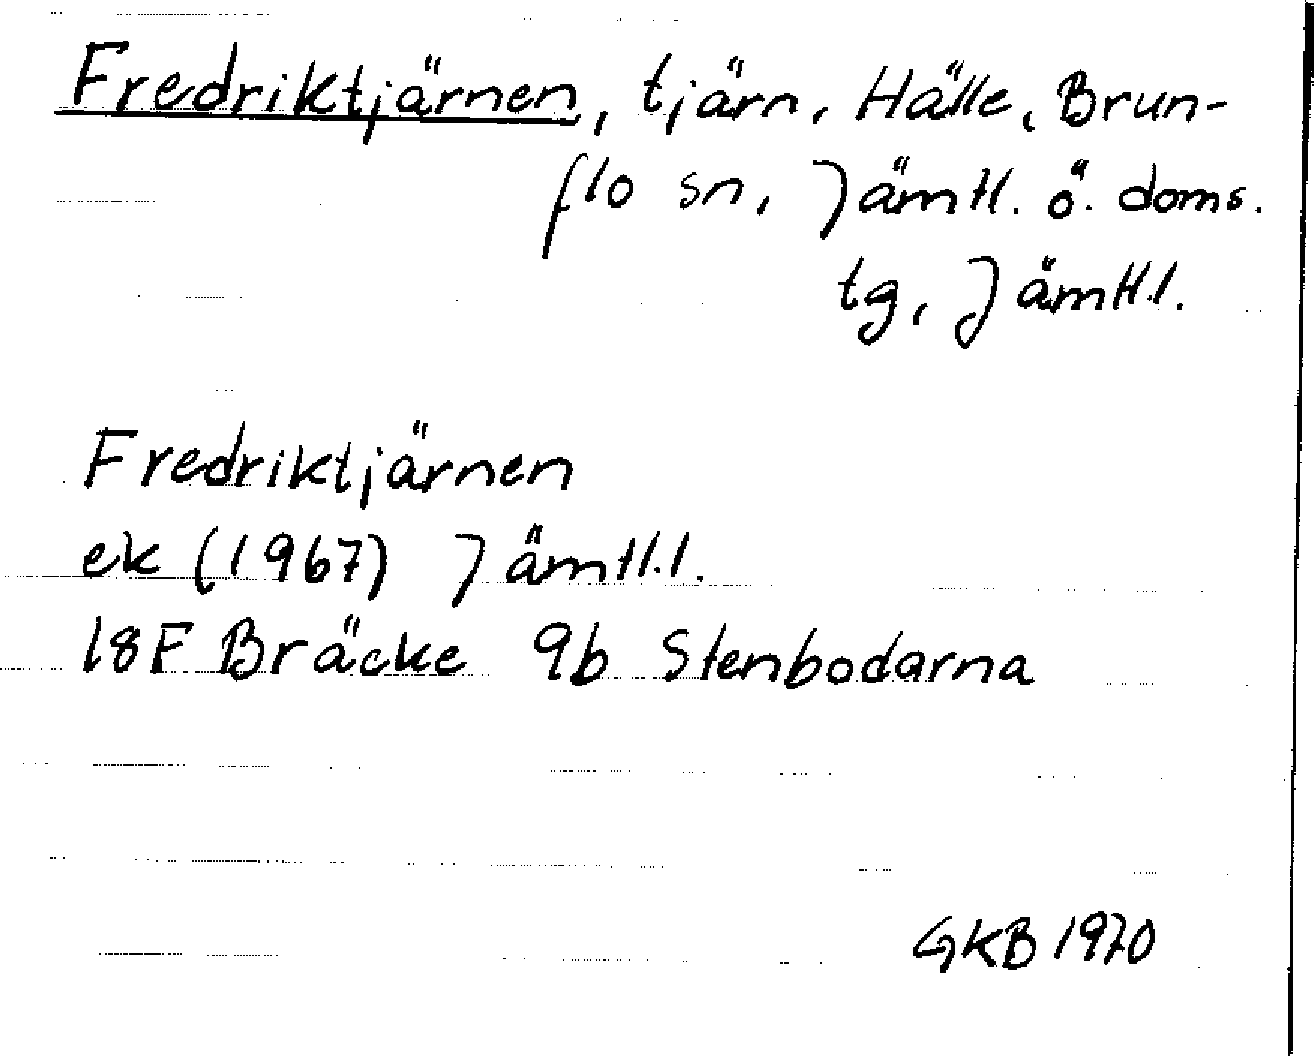 Fredriktjärnen, tjärn, Hälle, Brun-
flo sn, Jämtl. ö. doms.
tg, Jämtl.l.
Fredriktjärnen
ek (1967) Jämtl.l.
18F Bräcke 9b Stenbodarna
GKB 1970